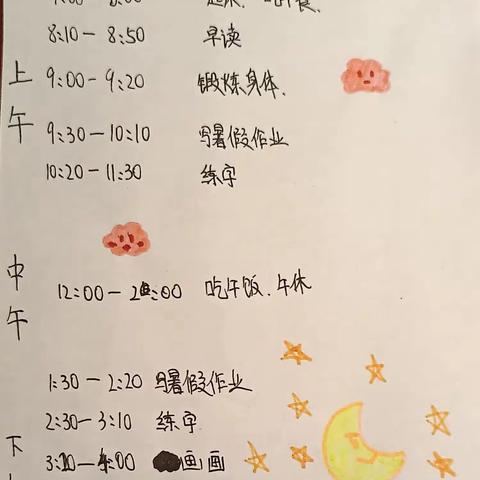 8:10 — 8:50 早读
上午
9:00 — 9:20 锻炼身体、
9:30 — 10:10 写暑假作业
10:20 — 11:30 练字
中午
12:00 — 2:00 吃午饭、午休
1:30 — 2:20 写暑假作业
2:30 — 3:10 练字
下
3:20 — 4:00 画画